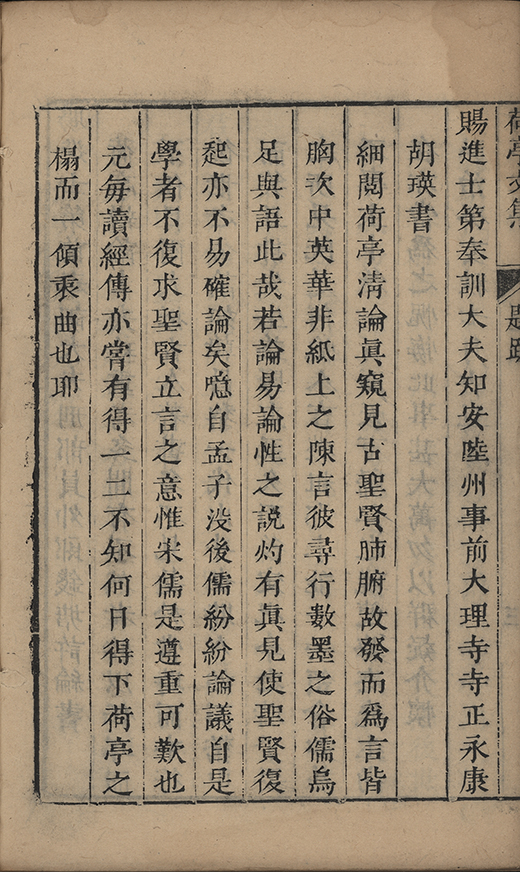 荷亭文集 題跋
賜進士第奉訓大夫知安陸州事前大理寺寺正永康
胡瑛書
細閱荷亭清論眞窺見古聖賢肺腑故發而爲言皆
胸次中英華非紙上之陳言彼尋行數墨之俗儒烏
足與語此哉若論易論性之說灼有眞見使聖賢復
起亦不易確論矣噫自孟子没後儒紛紛論議自是
學者不復求聖賢立言之意惟宋儒是遵重可歎也
元每讀經傳亦嘗有得一二不知何日得下荷亭之
榻而一傾衷曲也耶